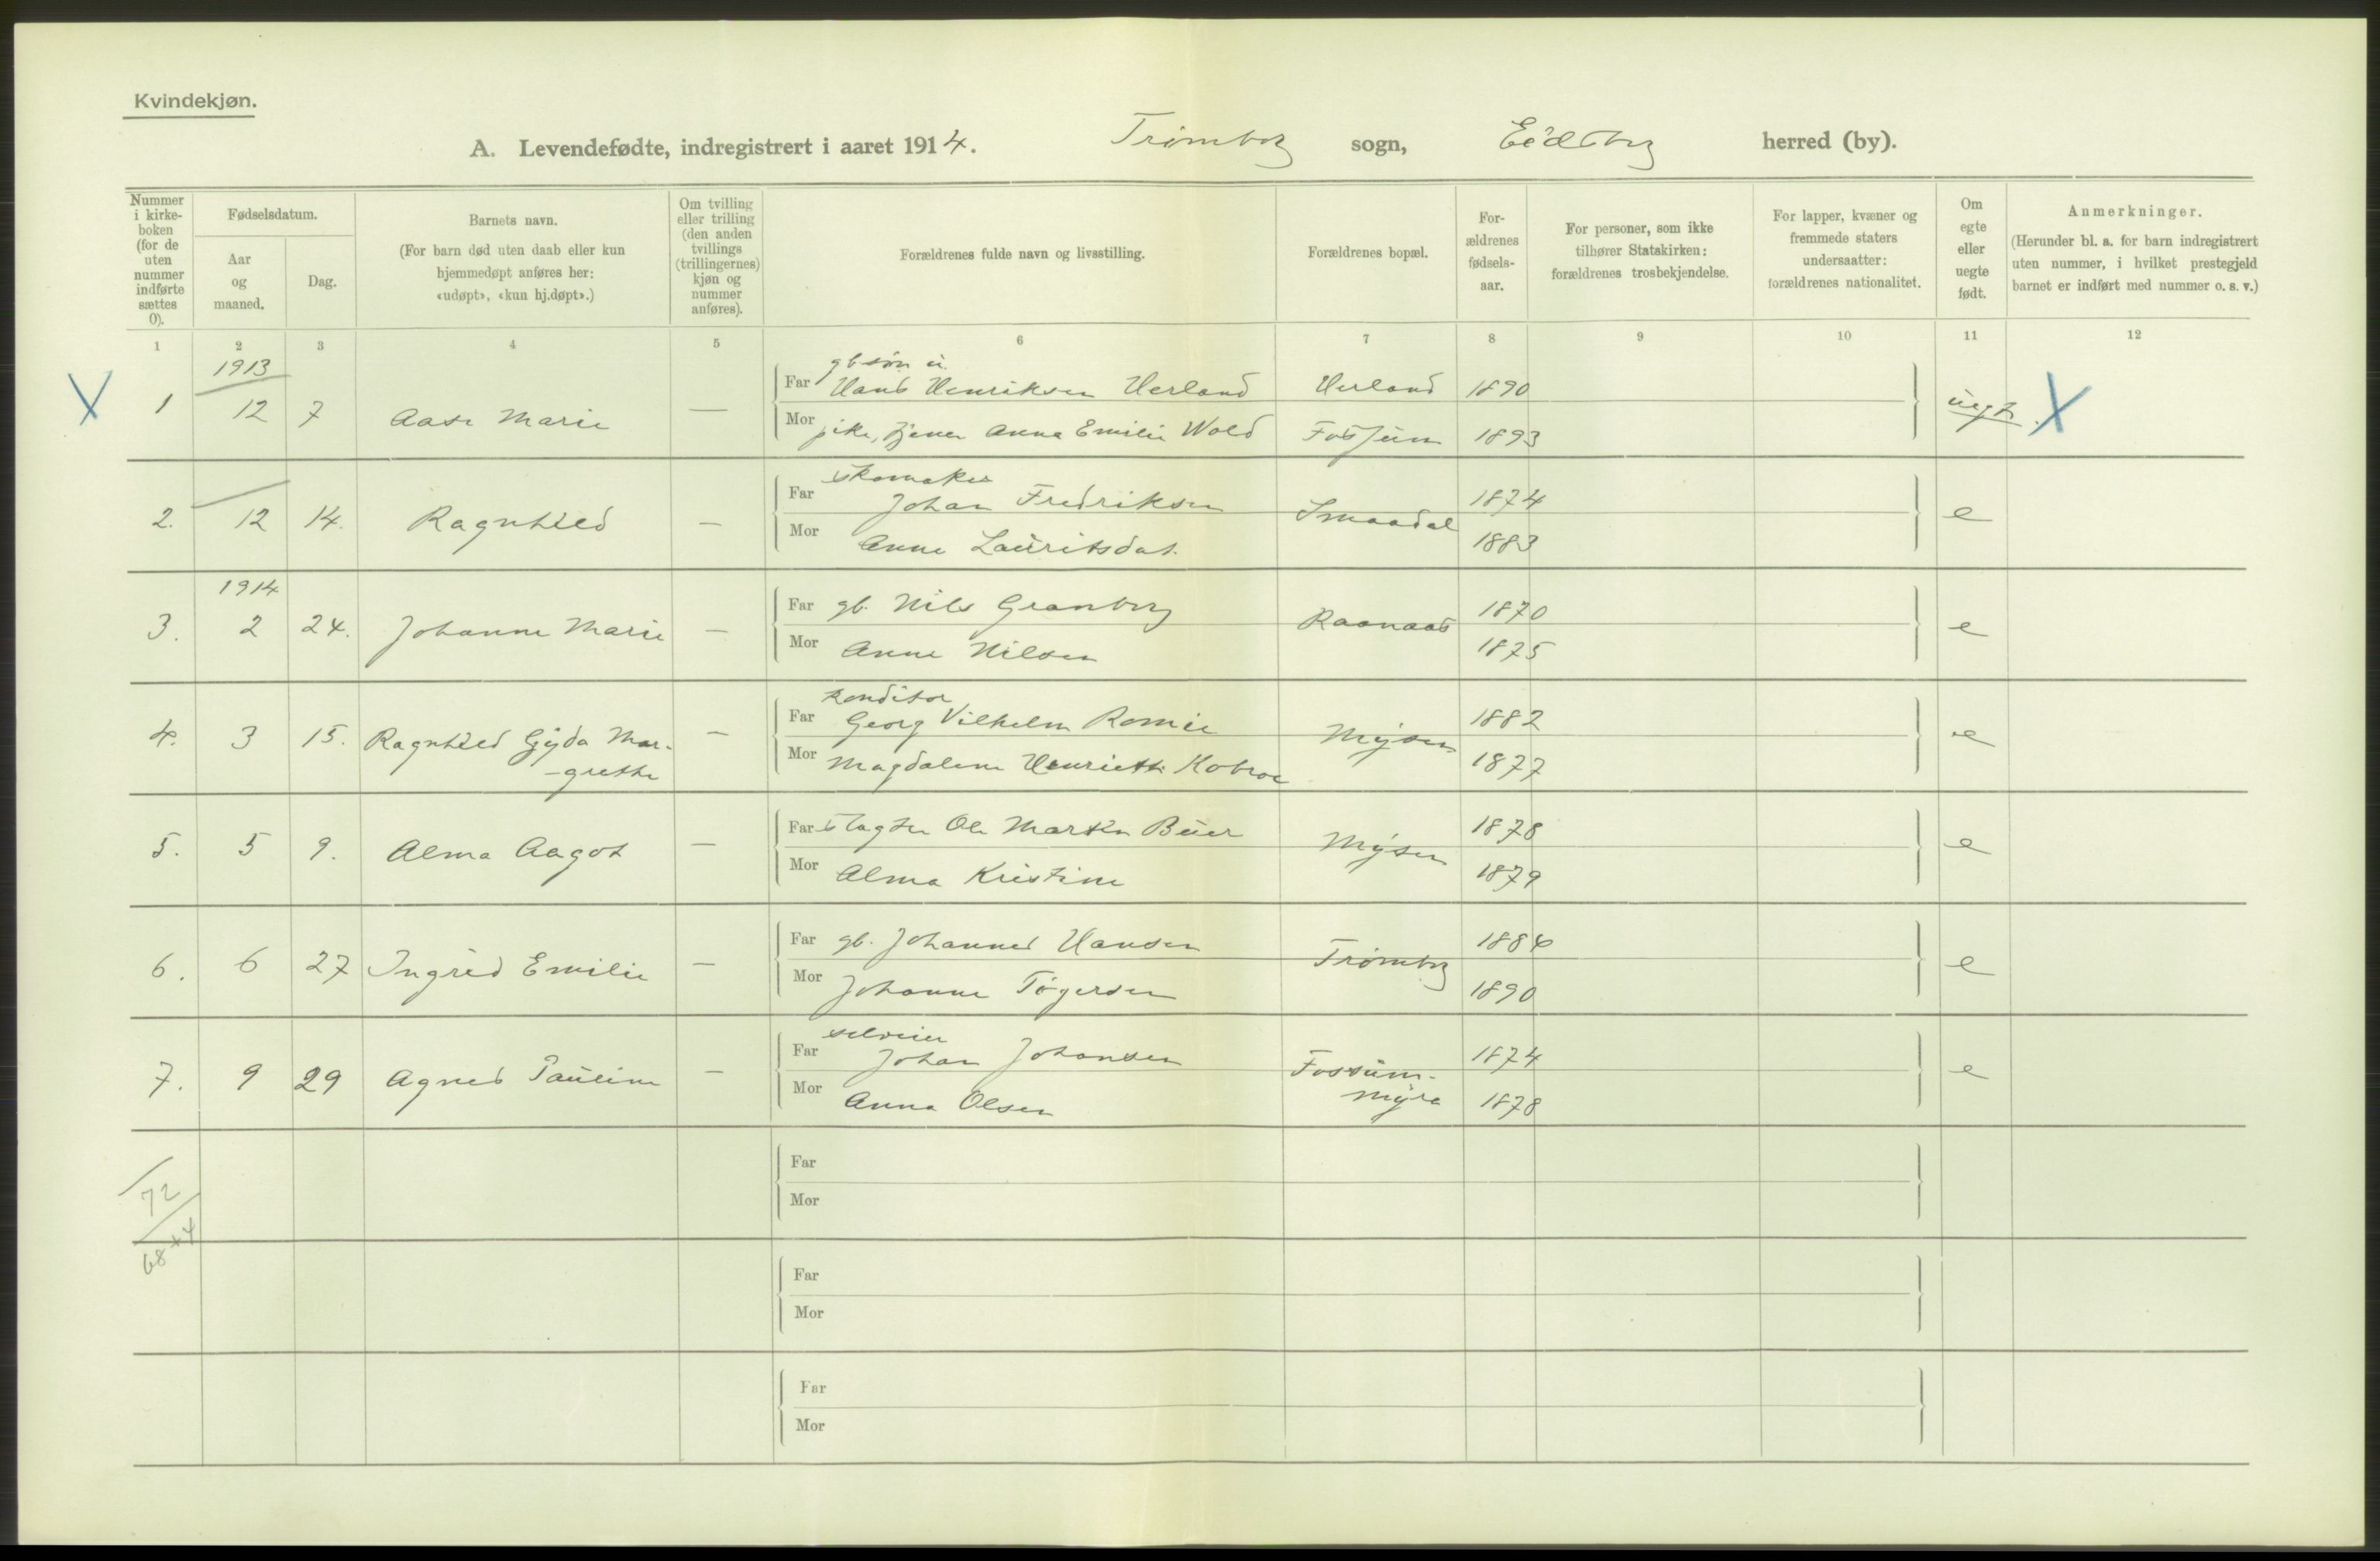 Kvindekjøn.
A. Levendefødte, indregistrert i aaret 1914. Trømborg sogn, Eidsberg herred (by).
Nummer i kirke-boken (for de uten nummer indførte sættes 0).
Fødselsdatum.
Aar og maaned.
Dag.
Barnets navn.
(For barn død uten daab eller kun hjemmedøpt anføres her: «udøpt», «kun hj.døpt».)
Om tvilling eller trilling (den anden tvillings (trillingernes) kjøn og nummer anføres).
Forældrenes fulde navn og livsstilling.
Forældrenes bopæl.
For-ældrenes fødsels-aar.
For personer, som ikke tilhører Statskirken: forældrenes trosbekjendelse.
For lapper, kvæner og fremmede staters undersaatter: forældrenes nationalitet.
Om egte eller uegte født.
Anmerkninger.
(Herunder bl. a. for barn indregistrert uten nummer, i hvilket prestegjeld barnet er indført med nummer o. s. v.)
1 2 3 4 5 6 7 8 9 10 11 12
1913
gb.søn u.
X 1 12 7 Aase Marie — Far Hans Henriksen Herland Herland 1890 uegt. X
Mor pike, tjener Anna Emilie Wold Fossum 1893
skomaker
2. 12 14. Ragnhild — Far Johan Fredriksen Smaadal 1874 e
Mor Anne Lauritsdat. 1883
1914
3. 2 24. Johanne Marie — Far gb. Nils Granborg Raanaas 1870 e
Mor Anne Nilsen 1875
konditor
4. 3 15. Ragnhild Gyda Mar- — Far Georg Vilhelm Mysen 1882 e
-grethe Mor Magdalene Henriette 1877
5. 5 9. Alma Aagot — Far slagter Ole Martin Buer Mysen 1878 e
Mor Alma Kristine 1879
6. 6 27 Ingrid Emilie — Far gb. Johannes Hansen Trømborg 1886 e
Mor Johanne Tøgersen 1890
selveier
7. 9 29 Agnes Pauline — Far Johan Johansen Fossum- 1874 e
Mor Anna Olsen myra 1878
Far
Mor
72
68 + 4
Far
Mor
Far
Mor